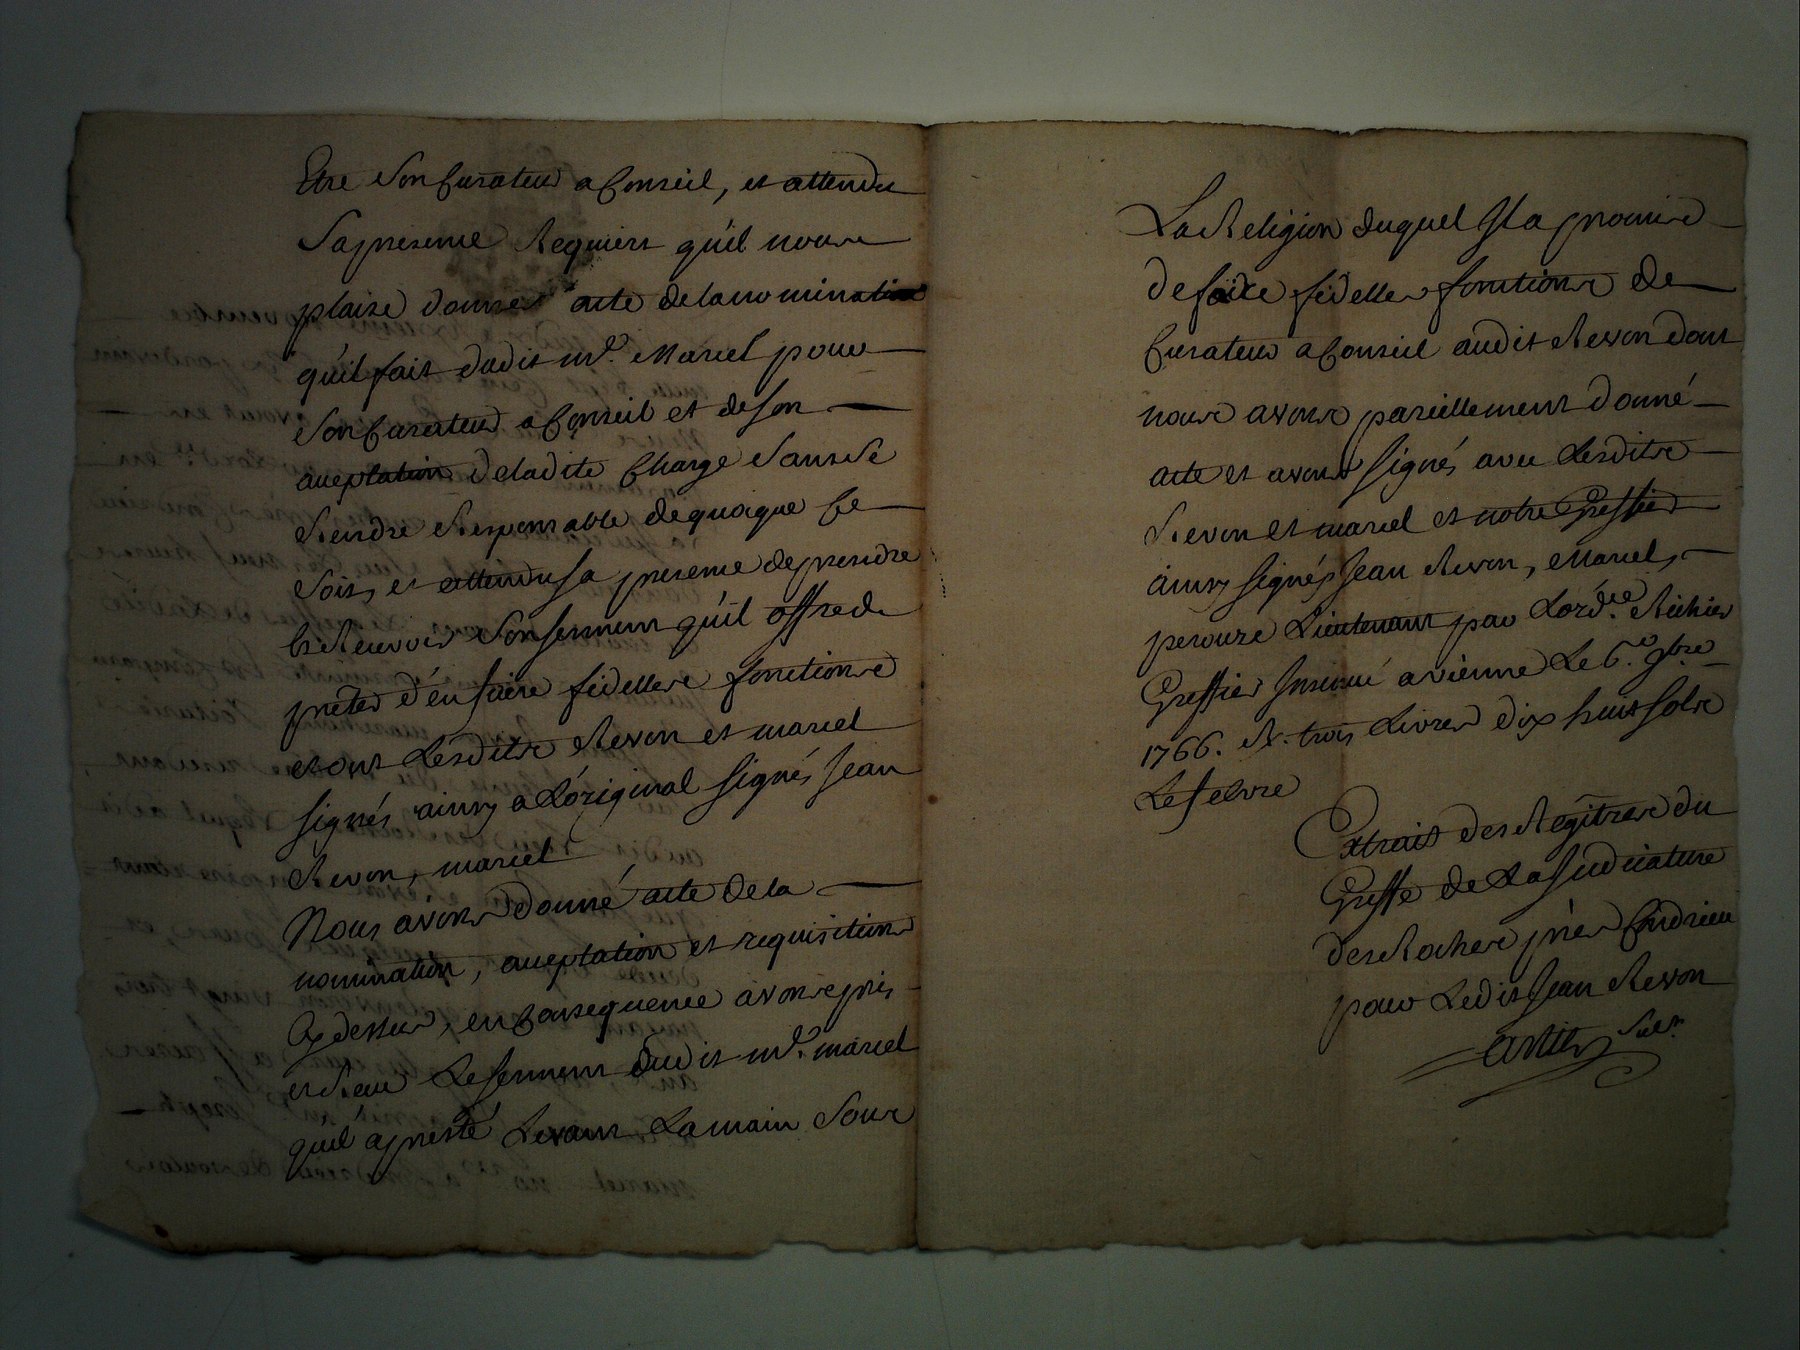 Etre Son Curateur a Conseil, et attendu
Sa presence Requiert qu'il nous
plaise donner acte de la nomination
qu'il fait dudit m.e Marcel pour
Son Curateur a Conseil et de son
acceptation de la dite Charge Sans se
Rendre Responsable de quoique ce
Soit, et attendu sa presence de prendre
et Recevoir Son serment qu'il offre de
prêter d'en faire fidelles fonctions
et ont Lesdits Revon et marcel
signés ainsy a L'original signés Jean
Revon, marcel
Nous avons donné acte de la
nomination, acceptation et requisitions
Cy dessus, en Consequence avons pris
et Reçu Le serment dudit m.e marcel
quil a presté Levant La main Sous
La Religion duquel Il a promis
de faire fidelles fonctions de
Curateur a Conseil audit Revon dont
nous avons pareillement donné
acte et avons signés avec Lesdits
Revon et marcel et notre Greffier
ainsy signés Jean Revon, Marcel,
perouze Lieutenant par Lord.ce Richier
Greffier Insinué a vienne Le 6.e 9bre
1766. R. trois Livres dix huit sols
Lefebvre
Extrait desRegîtres du
Greffe de La Judicature
des Roches près Condrieu
pour Ledit Jean Revon